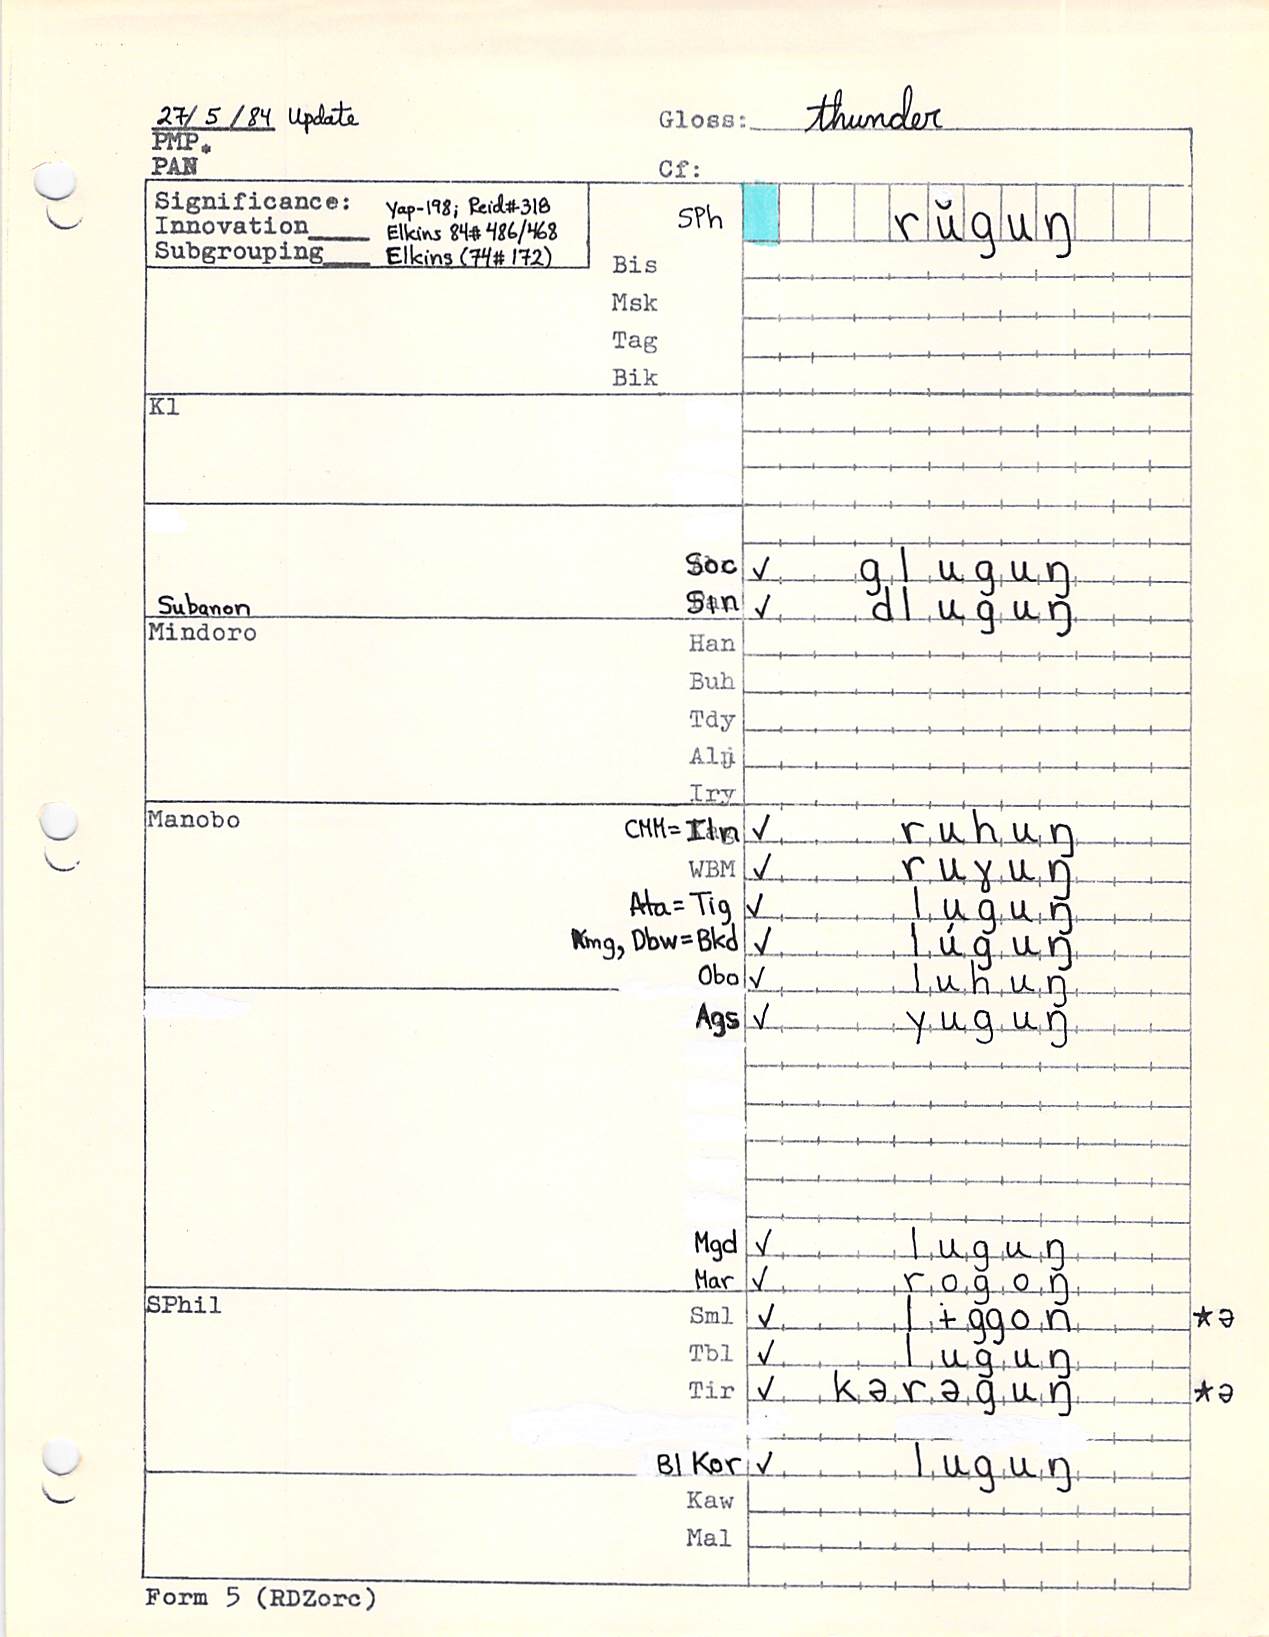 27/5/84 Update
Gloss: thunder
PMP.
PAN
Cf:
Significance: Yap-198; Reid#318
Innovation Elkins 84# 486/468
Subgrouping Elkins (74# 172)
SPh rŭguŋ
Bis
Msk
Tag
Bik
Kl
Soc ✓ gluguŋ
Subanon Sin ✓ dluguŋ
Mindoro
Han
Buh
Tdy
Alŋ
Iry
Manobo
CMM=Iln ✓ ruhuŋ
WBM ✓ ruɣuŋ
Ata=Tig ✓ luguŋ
Kmg, Dbw=Bkd ✓ lúguŋ
Obo ✓ luhuŋ
Ags ✓ yuguŋ
Mgd ✓ luguŋ
Mar ✓ rogoŋ
SPhil
Sml ✓ lɨggon *ə
Tbl ✓ luguŋ
Tir ✓ kərəguŋ *ə
Bl Kor ✓ luguŋ
Kaw
Mal
Form 5 (RDZorc)